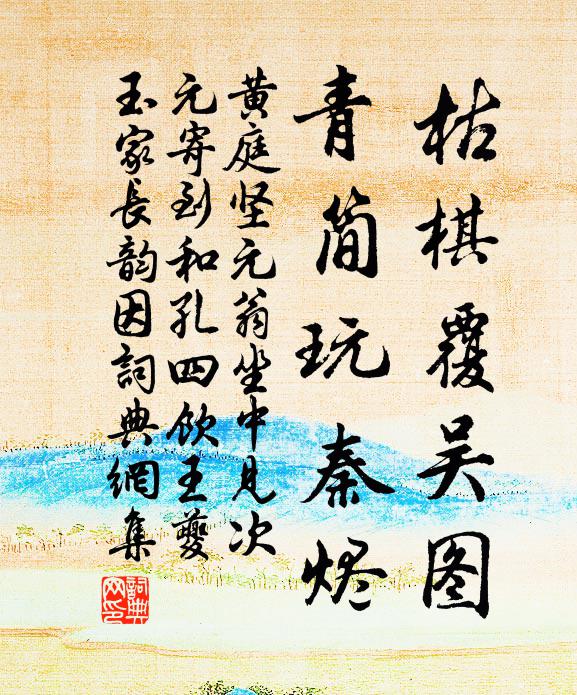 枯棋覆吴图
青简玩秦烬
黄庭坚元翁坐中见次
元寄到和孔四饮王夔
玉家长韵因詞典網集
詞典网印